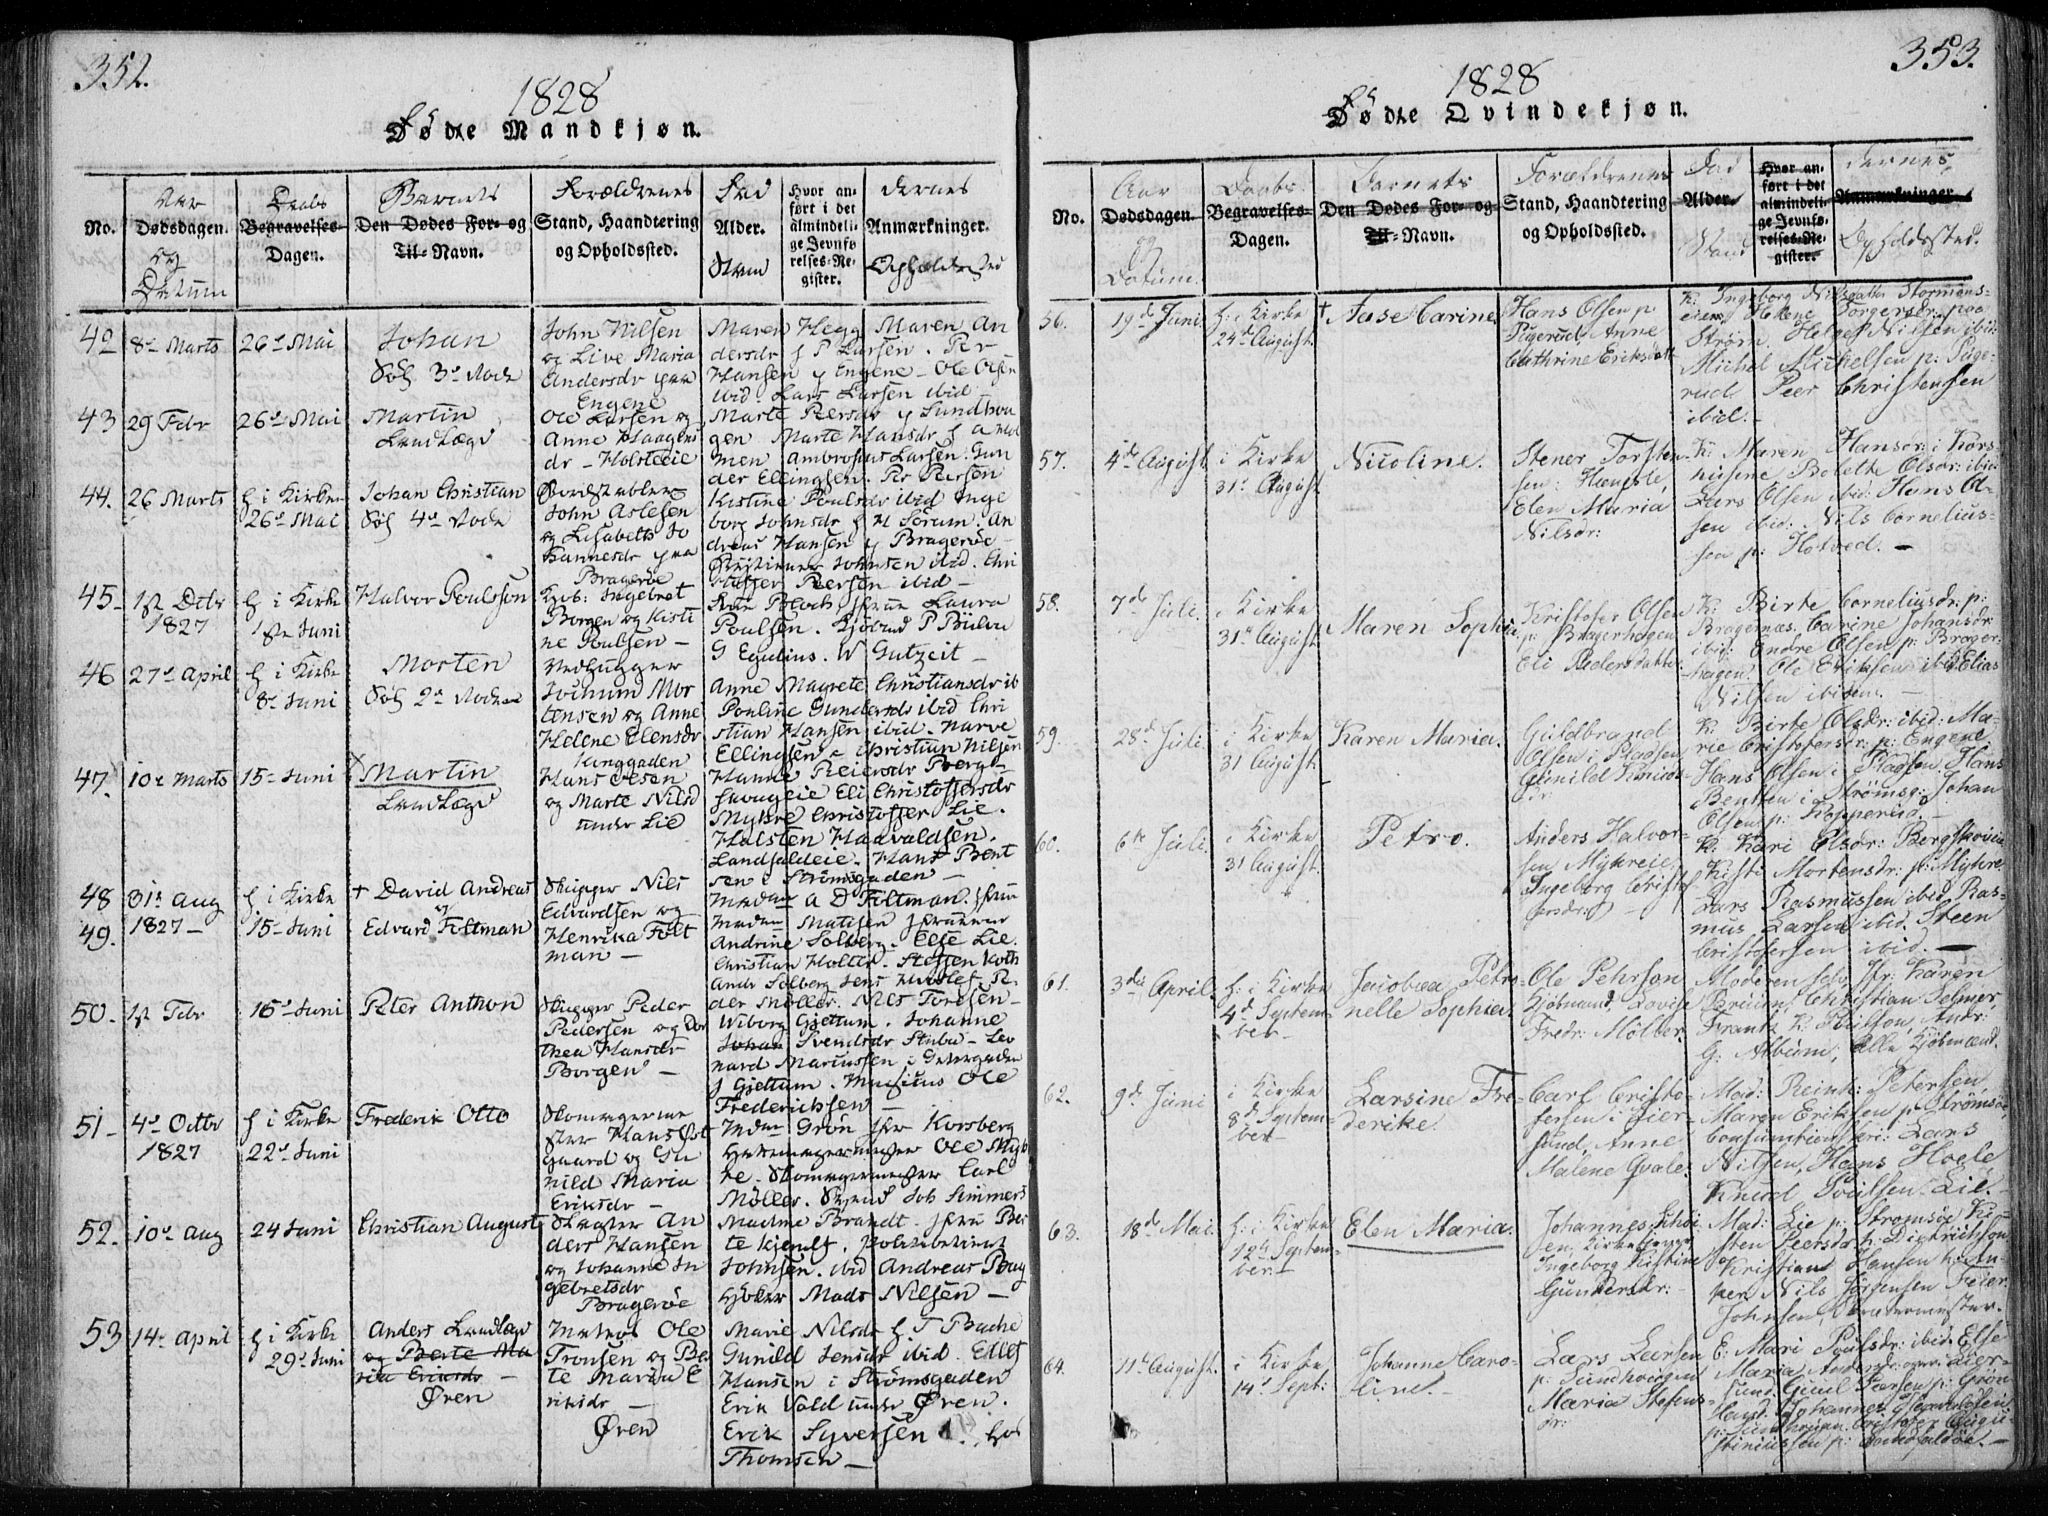 352.
1828
Fødte Mandkjøn.
No.
Aar
Dødsdagen.
og
Datum
Daabs
Begravelses-
Dagen.
Barnets
Den Dødes For- og
Til-Navn.
Forældrenes
Stand, Haandtering
og Opholdssted.
Fad
Alder.
Stand
Hvor an-
ført i det
almindeli-
ge Jevnfø-
relses-Re-
gister.
dernes
Anmærkninger.
Opholdssted
8de Marts
26de Mai
Johan
Søs 3de Rode
John Nilsen
og Live Maria
Andersdr fra
Engene
Maren Hegg Maren An
dersdr h P Larsen. Per
Hansen p Engene - Ole Olsen
ibid. Lars Larsen ibid -
43
29 Febr
26de Mai
Martin
Landlægd
Ole Larsen og
Anne Haagens
dr - Holsteie
Marte Peersdr p Sundhou
gen Marte Hansdr h And
men Ambrosius Larsen. Gun
der Ellingsen. Per Persen
44.
26 Marts
h i Kirke
26de Mai
Johan Christian
Søs 4de Rode
John Aslesen
og Lisabeth Jo
hannesdr fra
Bragerøe
Kistine Poulsdr ibid Inge
borg Johnsdr h H Sørum. An
dreas Hansen p Bragerøe -
Johnsen ibid. Chri
stoffer Persen ibid -
45
1ste Dcbr
1827
h i Kirke
1ste Juni
Halvor Poulsson
Kjøb: Ingebret
Borgen og Kisti
ne Poulsen -
Fru Bloch, frue Laura
Poulsen. Kjøbmd P Bülow
G Egidius. W Gutzeit -
46
27de April
h i Kirke
8de Juni
Morten
Søs 2de Rode
Vedhugger
Jochum Mor
tensen og Anne
Helene Elensdr
Langgaden
Anne Magrete Christiansdr ib
Pouline Gundersdr ibid Chri
stian Hansen ibid. Narve
Ellingsen - Christian Nilsen
47.
10de Marts
15de Juni
Martin
Landlægd
Hans Olsen
og Marte Nilsd
under Lie
Hanne Reiersdr Berg-
Eli Christoffersdr
Myhre Christoffer Lie.
Holsten Haavaldsen.
Landfaldeie. Hans Bent
sen i Strømsgaden -
48
49.
31te Aug
1827 -
h i Kirke
15de Juni
+ David Andreas
og
Edvard Foltman
Skipper Nils
Edvardsen og
Henrika Folt
man -
Madam A D Foltman. frue
Madam Matisen
Andrine Solberg. Else Lie.
Christian Holter. Steffen Koth
Andr Solberg Jens Pe-
der Møller. Nils Toresen -
50.
1ste Febr
15de Juni
Peter Anthon
Skipper Peder
Pedersen og Dor
thea Hansdr
Borgen -
Wiborg Gjettum. Johanne
Johan Svendsdr Stuba - Leo
nard Marcussen i Getergaden
J Gjettum. Musicus Ole
Frederichsen -
51
4de Octbr
1827
h i Kirke
22de Juni
Frederik Otto
Skomagerme
ster Hans Øst
gaard og Gu
nild Maria
Eriksdr -
Mdm Grøn fra Korsberg
Hattemagermester Ole Myh
re. Skomagermester Carl
Möller. Svend Joh Simmers
52.
10de Aug
24 Juni
Christian August
Slagter An
ders Hansen
og Johanne In
gebretsdr
Bragerøe
Madme Brandt. fru Be
te Kjemds. Politibetient
Johnsen. ibid Andreas Bag
Høker Mads Nilsen -
53
14de April
h i Kirke
29de Juni
Anders Landlægd
og Berte Ma
ria Eriksdr -
Øren
Matros Ole
Tronsen og Be
te Maria E
riksdr -
Øren
Marie Nilsdr h. T Bache
Gunild Jensdr ibid. Ellef
Hansen i Strømsgaden
Erik Vold under Øren.
Erik Syversen. hos
Thomsen -
353.
1828
Fødte Qvindekjøn.
No.
Aar
Dødsdagen.
og
Datum.
Daabs
Begravelses-
Dagen.
Barnets
Den Dødes For- og
Til-Navn.
Forældrenes
Stand, Haandtering
og Opholdssted.
Fad
Alder.
Stand
Hvor an-
ført i det
almindeli-
ge Jevnfø-
relses-Re-
gister.
dernes
Anmærkninger.
Opholdssted.
56.
19de Juni.
h: i Kirke
24de August.
+ Aase Karine.
Hans Olsen p
Pügerud, Anne
Cathrine Eriksdatt.
K: Ingeborg Nilsdatter Stormøns-
eier, Helene Torgersdr. paa
Strøm. Helge Nilsen ibid:
Michel Michelsen p: Püge-
rud Peer Christensen
ibid. -
57.
4de August.
i Kirke
31te August.
Nicoline.
Stener Torsten-
sen: Hængsle,
Elen Maria
Nilsdr:
K: Maren Hansdr: i Kors-
Bolette Olsdr: ibid:
Lars Olsen ibid: Hans Ol-
sen ibid. Nils Cornelius-
sen p: Hotved. -
58.
7de Juli.
i Kirke
31te August.
Maren Sophie.
Kristofer Olsen
p. Bragerhagen
Eli Pedersdatter.
K: Birte Corneliusdr: p:
Bragernæs. Carine Johansdr
ibid: Andre Olsen p: Brager-
hagen. Ole Eriksen ibid. Elias
Nilsen ibidem. -
59.
28de Juli.
i Kirke
31 August.
Karen Maria.
Guldbrand
Olsen i Pladsen
Gunild Knuds-
dr:
K: Birte Olsdr: ibid: Ma-
rie Cristofersdr: p: Engene
Hans Olsen i Pladsen. Hans
Bentsen i Strømsg: Johan
Olsen p: Kopperud.
60.
6te Juli.
i Kirke
31 August.
Petro.
Anders Halvor-
sen Myhreie,
Ingeborg Cristof
fersdr: -
K: Kari Olsdr: Bergskovene
Kisti Mortensdr: p: Myhre
Lars Rasmussen ibid. Ras-
mus Larsen ibid. Steen
Cristofersen ibid. -
61.
3die April.
h: i Kirke
4de Septem-
ber -
Jacobea Petro-
nelle Sophia.
Ole Pehrson
Kjøbmand, Lovise
Fredr: Møller.
Moderen selv, Fr: Karen
Bruun, Christian Selmer,
Frantz K: Poulson, Andr:
G: Album, alle Kjøbmænd.
62.
9de Juni
i Kirke
8de Septem-
ber -
Larsine Fre-
derike
Carl Cristo-
fersen i Lier-
sund, Anne
Malene Qvale.
Mad: Reink: Petersen,
Maren Eriksen p: Strømsøe
Lars
Nilsen, Hans Hoele
Knud Poulsen. Lie. -
63.
18de Mai.
h: i Kirke
12te Septem-
ber -
Elen Maria.
Johannes
Ingeborg Kistine
Gundersdr: -
Mad: Lie p: Strømsøe Ki-
sten Peersdr h: Didrichson
Kristian Hansen h: An-
ker Nils Jørgensen Feier
Johnsen,
64.
11te August.
i Kirke
14de Sept:
Johanne Caro-
line. -
Lars Larsen
p: Sundhougen
Maria Stefens-
dr:
E: Mari Poulsdr: ibid. Else
Maria Andersdr: over Lier-
sund. Gul Larsen p: Grøn-
land. Johannes Haavalsen
p: Sundhougen. Cristofer Augu-
stiniussen p: Landfaldøe. -